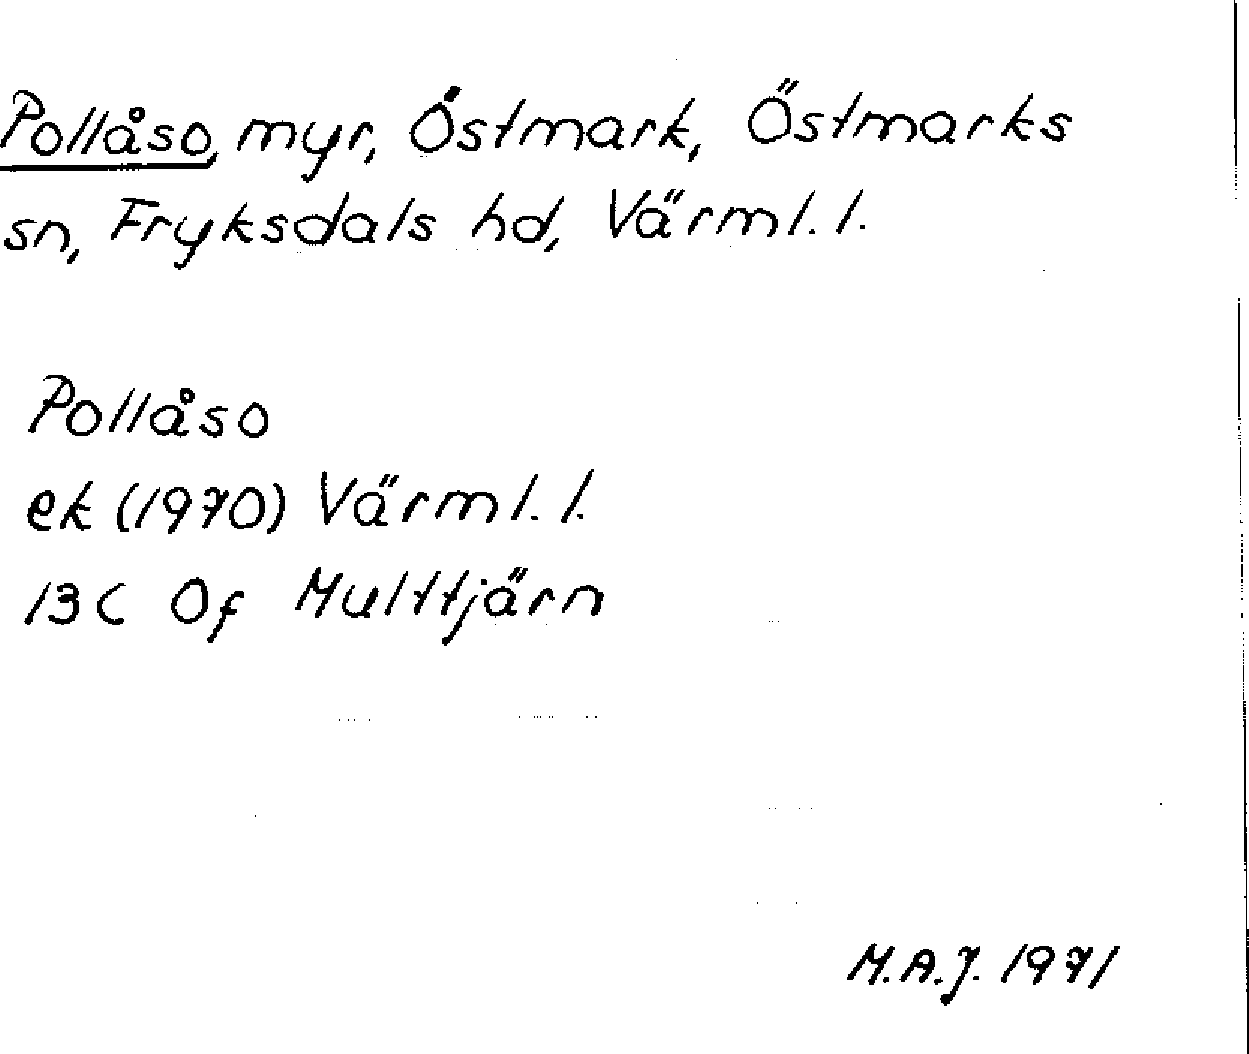 Pollåso, myr, Östmark, Östmarks
sn, Fryksdals hd, Värml. l.
Pollåso
ek (1970) Värml. l.
13C 0f Multtjärn
M.A.J. 1971